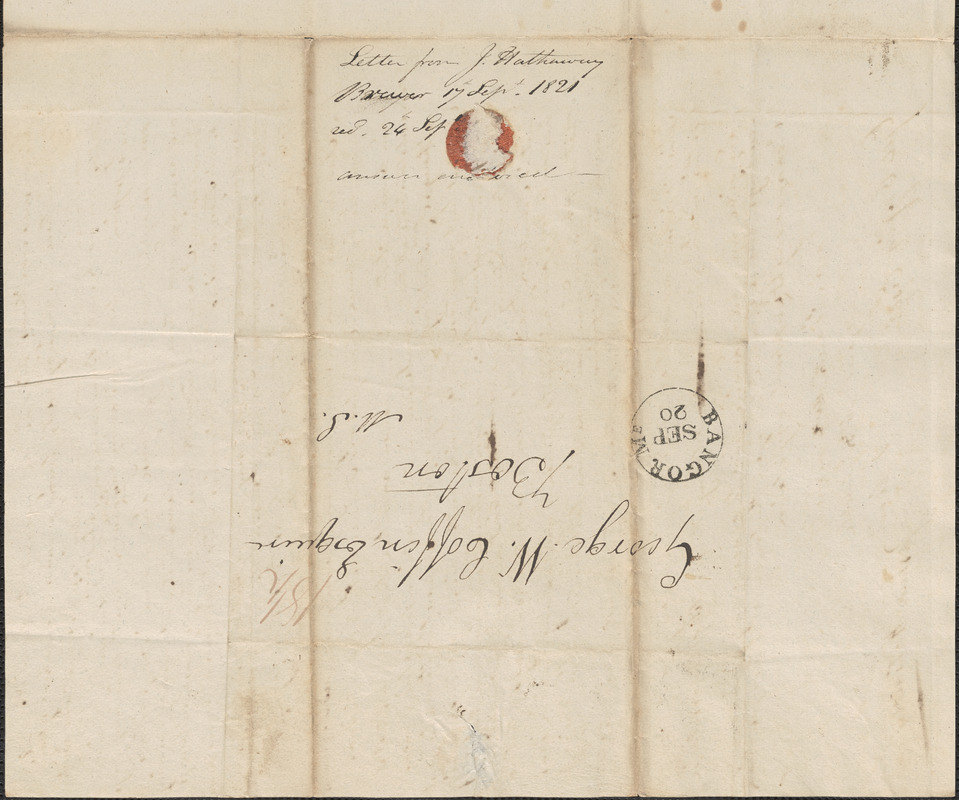 Letter from J. Hathaway
Brewer 17 Sept. 1821
recd. 24 Sep
answer
George W. Coffin Esquire
Boston
M.S.
18 1/2
BANGOR ME
SEP
20